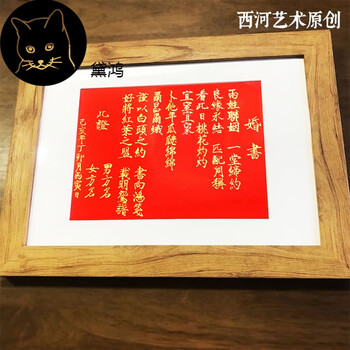 西河艺术原创
黛鸿
婚書
兩姓聯姻 一堂締約
良緣永結 匹配同稱
看此日桃花灼灼
宜室宜家
卜他年瓜瓞綿綿
爾昌爾熾
謹以白頭之約 書向鴻箋
好將紅葉之盟 載明鴛譜
此證
男方名
女方名
己亥年丁卯月丙寅日